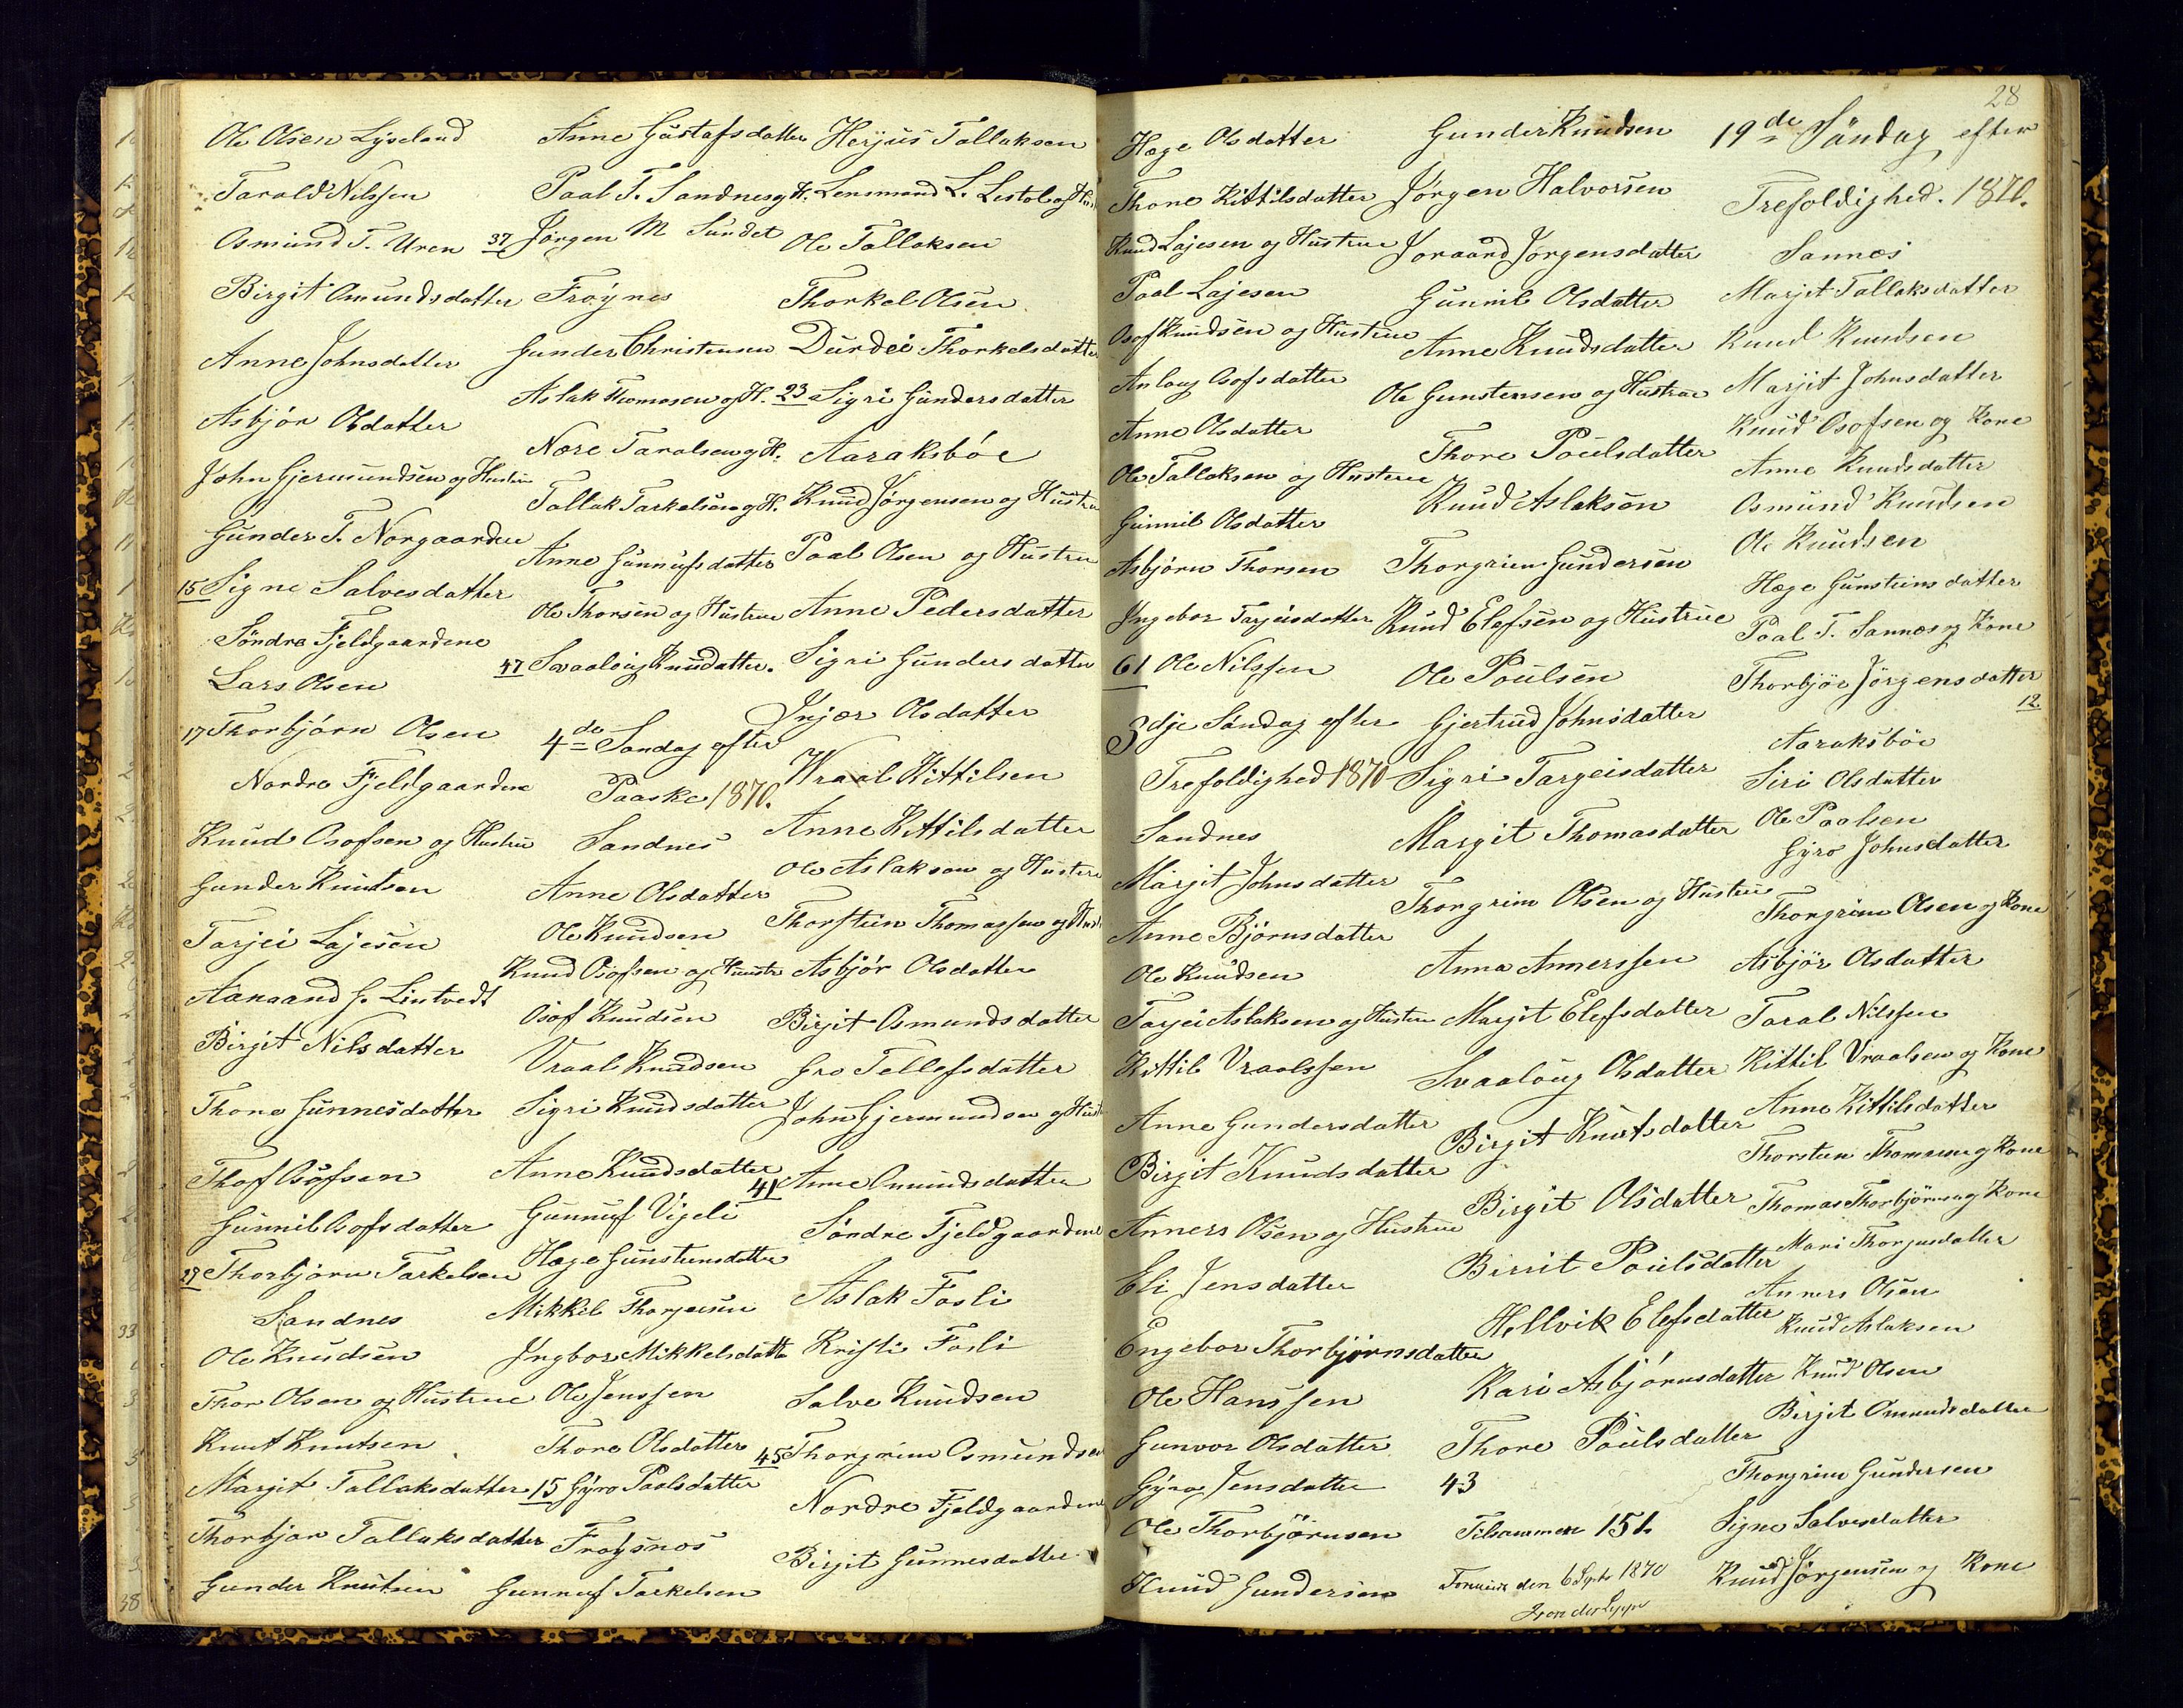 Ole Olsen Lyseland
Tarald Nilssen
Osmund T. Uren
Birgit Omundsdatter
Anne Johnsdatter
Asbjør Olsdatter
John Gjermundsen og Hustru
Gunder T. Norgaarden
15 Signe Salvesdatter
Söndre Fjeldgaardene
Lars Olsen
17 Thorbjörn Olsen
Nordre Fjeldgaardene
Knud Osofsen og Hustru
Gunder Knutsen
Tarjei Lajesen
Aanaand G. Lintvedt
Birgit Nilsdatter
Thone Gunnesdatter
Thof Osofsen
Gunnil Osofsdatter
27 Thorbjörn Tarkelsen
Sandnes
Ole Knudsen
Thor Olsen og Hustrue
Knut Knutsen
Margit Tallaksdatter
Thorbjør Tallaksdatter
Gunder Knutsen
Anne Gustafsdatter
Paal T. Sandnes og H.
37 Jörgen M Sundet
Fröynes
Gunder Christensen
Aslak Thomasen og H.
Nore Taralsen og H.
Tallak Tarkelsen og H.
Anne Gunnufsdatter
Ole Thorsen og Hustrue
47 Svaaloug Knudsdatter.
4de Søndag efter
Paaske 1870.
Sandnes
Anne Olsdatter
Ole Knudsen
Knud Osofsen og Hustru
Osof Knudsen
Vraal Knudsen
Sigri Knudsdatter
Anne Knudsdatter
Gunnuf Vigeli
Hæge Gunsteinsdatter
Mikkel Thorjeisen
Ingbor Mikkelsdatter
Ole Jenssen
Thore Olsdatter
15 Gyro Paalsdatter
Frøysnes
Gunnuf Tarkelsen
Herjus Tallaksen
Lensmand L. Listol og Hus
Ole Tallaksen
Thorkel Olsen
Durdei Thorkelsdatter
23 Sigri Gundersdatter
Aaraksböe
Knud Jörgensen og Hustru
Paal Olsen og Hustru
Anne Pedersdatter
Sigri Gundersdatter
Injær Olsdatter
Wraal Kittilsen
Anne Kittilsdatter
Ole Aslaksen og Hustru
Thorstein Thomassen og Hust
Asbjör Olsdatter
Birjit Osmundsdatter
Gro Tellefsdatter
John Gjermundsen og Hust
41 Anne Omundsdatter
Söndre Fjeldgaardene
Aslak Fosli
Kristi Fosli
Salve Knudsen
45 Thorgrim Osmundsen
Nordre Fjeldgaardene
Birjit Gunnesdatter
28
Hæge Olsdatter
Thone Kittilsdatter
Knud Lajesen og Hustrue
Paal Lajesen
Osof Knudsen og Hustrue
Anlaug Osofsdatter
Anne Olsdatter
Ole Tallaksen og Hustrue
Gunnil Olsdatter
Asbjørn Thorsen
Ingebor Tarjeisdatter
61 Ole Nilssen
3dje Söndag efter
Trefoldighed 1870
Sandnes
Margit Johnsdatter
Anne Björnsdatter
Ole Knudsen
Tarjei Aslaksen og Hustru
Kittil Vraalssen
Anne Gundersdatter
Birgit Knudsdatter
Anners Olsen og Hustrue
Eli Jensdatter
Engebor Thorbjörnsdatter
Ole Hanssen
Gunvor Olsdatter
Gyro Jensdatter
Ole Thorbjörnsen
Knud Gundersen
Gunder Knudsen
Jörgen Halvorsen
Joraand Jörgensdatter
Gunnil Olsdatter
Anne Knudsdatter
Ole Gunstensen og Hustrue
Thore Poulsdatter
Knud Aslaksøn
Thorgrim Gundersen
Knud Elefsen og Hustrue
Ole Poulsen
Gjertrud Johnsdatter
Sigri Targeisdatter
Margit Thomasdatter
Thorgrim Olsen og Hustru
Anna Annerssen
Margit Elefsdatter
Svaaloug Olsdatter
Birgit Knutsdatter
Birgit Olsdatter
Birrit Poulsdatter
Hellvik Elefsdatter
Kari Asbjørnsdatter
Thore Poulsdatter
43
Tilsammen 151.
den 6 Sptr 1870
19de Søndag efter
Trefoldighed. 1870.
Sannes
Marjit Tallaksdatter
Knud Knudsen
Marjit Johnsdatter
Knud Osofsen og Kone
Anne Knudsdatter
Osmund Knudsen
Ole Knudsen
Hæge Gunsteinsdatter
Paal T. Sannes og Kone
Thorbjör Jörgensdatter
12.
Aaraksböe
Siri Olsdatter
Ole Paalsen
Gyro Johnsdatter
Thorgrim Olsen og Kone
Asbjör Olsdatter
Taral Nilssen
Kittil Vraalsen og Kone
Anne Kittilsdatter
Thorstein Thomasen og Kone
Thomas Thorbjörnsen og Kone
Mari Thorgusdatter
Anners Olsen
Knud Aslaksen
Knud Olsen
Birjit Omundsdatter
Thorgrim Gundersen
Signe Salvesdatter
Knud Jörgensen og Kone